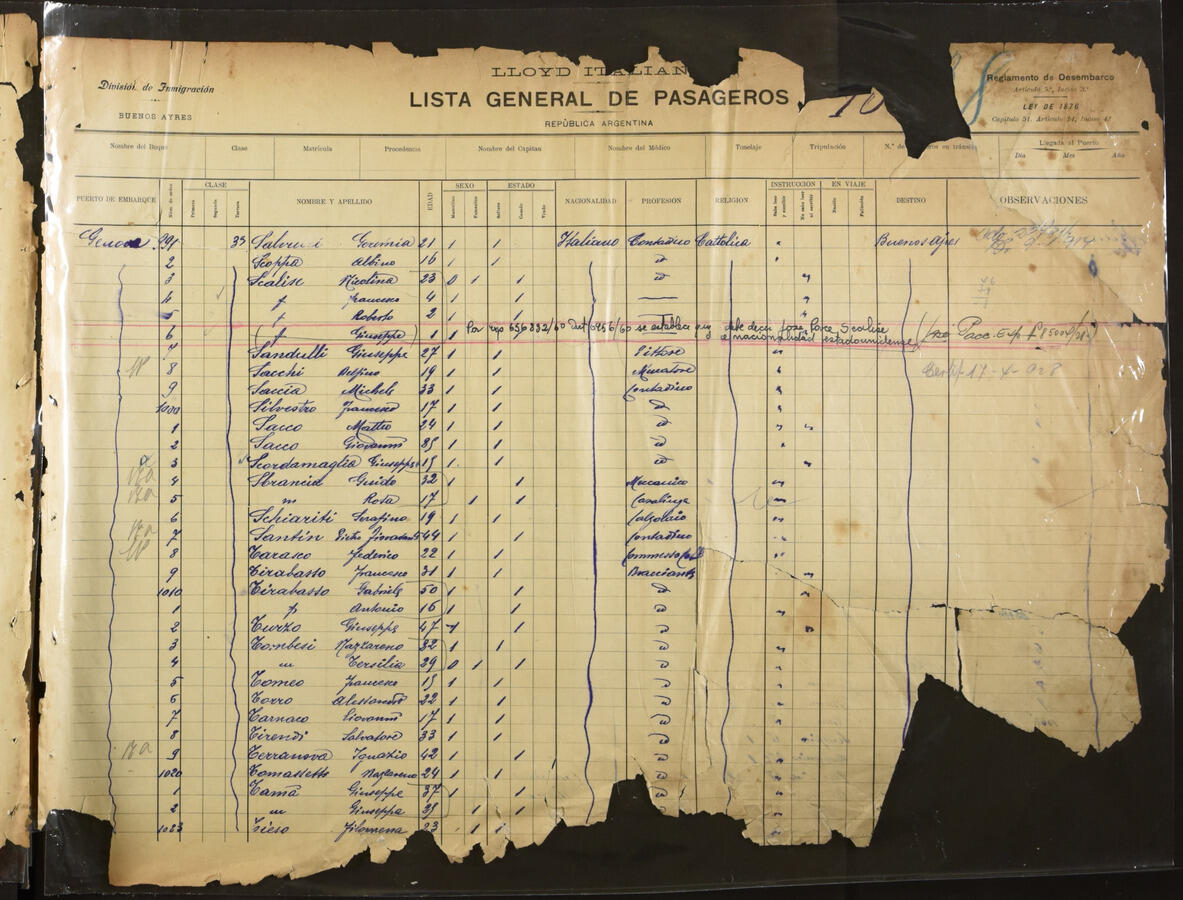 LLOYD ITALIAN
División de Inmigración
BUENOS AYRES
LISTA GENERAL DE PASAGEROS
REPÚBLICA ARGENTINA
10 8
Reglamento de Desembarco
Artículo 5º, Inciso 3º
LEY DE 1876
Capítulo 51, Artículo 24, Inciso 4º
Nombre del Buque Clase Matrícula Procedencia Nombre del Capitan Nombre del Médico Tonelaje Tripulación N.º de en tránsito Llegada al Puerto
Día Mes Año
PUERTO DE EMBARQUE Núm. de orden CLASE Primera Segunda Tercera NOMBRE Y APELLIDO EDAD SEXO Masculino Femenino ESTADO Soltero Casado Viudo NACIONALIDAD PROFESION RELIGION INSTRUCCION Sabe leer y escribir No sabe leer ni escribir EN VIAJE Nacido Fallecido DESTINO OBSERVACIONES
Genova 991 33 Geremia 21 1 1 Italiano Contadino Cattolica " Buenos Ayres
2 Scoppa Albino 16 1 1 "
3 Scalise Nicolina 23 0 1 1 "
4 Francesco 4 1 1
5 Roberto 2 1 1
6 Giuseppe 1 1 Por exp 656832/60 se establece que debe decir José Scalise
nacionalidad estadounidense
7 Sandulli Giuseppe 27 1 1 Pittore "
8 Sacchi Delfino 19 1 1 Muratore " Certif 17-4-928
9 Saccia Michele 33 1 1 Contadino "
1000 Silvestro Francesco 17 1 1 "
1 Sacco Matteo 24 1 1 " "
2 Sacco Giovanni 1 1 "
3 Scordamaglia Giuseppe 1 1 "
4 Sbrancia Guido 32 1 1 Meccanico "
5 " Rosa 17 1 1 Casalinga "
6 Schiariti Serafino 19 1 1 Calzolaio "
7 Santin Pietro 44 1 1 Contadino "
8 Tarasco Federico 22 1 1 Commesso "
9 Tirabasso Francesco 31 1 1 Bracciante "
1010 Tirabasso Gabriele 50 1 1 "
1 Antonio 16 1 1 "
2 Turzo Giuseppe 47 1 1 "
3 Tombesi Nazzareno 32 1 1 "
4 " Tersilia 29 0 1 1 "
5 Tomeo Francesco 1 1 "
6 Torro Alessandro 22 1 1 "
7 Tarnaco Giovanni 17 1 1 "
8 Tirendi Salvatore 33 1 1 "
9 Terranova Ignazio 42 1 1 "
1020 Tomassetti Nazzareno 24 1 1
1 Tamà Giuseppe 37 1 1
2 " Giuseppa 1 1
1023 Filomena 23 1 1